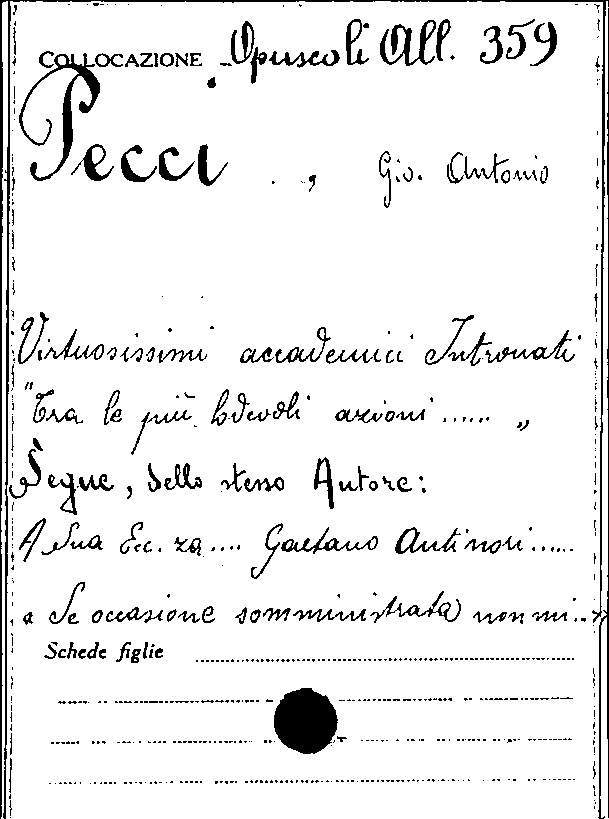 COLLOCAZIONE Opuscoli All. 359
Pecci, Gio. Antonio
Virtuosissimi accademici Intronati
"Tra le più lodevoli azioni ...... „
Segue, dello stesso Autore:
A Sua Ecc. za .... Gaetano Antinori ......
« Se occasione somministrata non mi ... »
Schede figlie